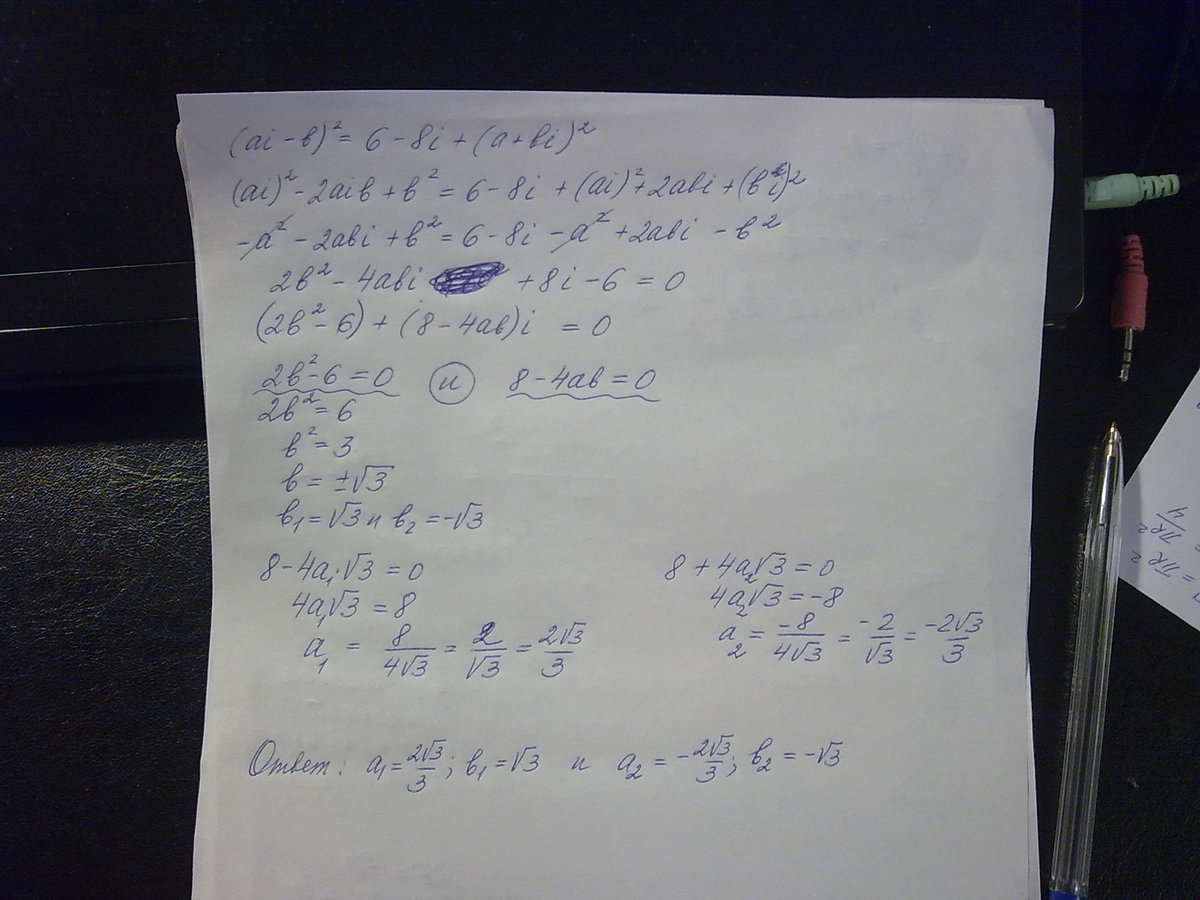 (ai - b)² = 6 - 8i + (a + bi)²
(ai)² - 2aib + b² = 6 - 8i + (ai)² + 2abi + (bi)²
-a² - 2abi + b² = 6 - 8i - a² + 2abi - b²
2b² - 4abi + 8i - 6 = 0
(2b² - 6) + (8 - 4ab)i = 0
2b² - 6 = 0 и 8 - 4ab = 0
2b² = 6
b² = 3
b = ±√3
b₁ = √3 и b₂ = -√3
8 - 4a₁·√3 = 0
4a₁√3 = 8
a₁ = 8/4√3 = 2/√3 = 2√3/3
8 + 4a₂√3 = 0
4a₂√3 = -8
a₂ = -8/4√3 = -2/√3 = -2√3/3
Ответ: a₁ = 2√3/3; b₁ = √3 и a₂ = -2√3/3; b₂ = -√3